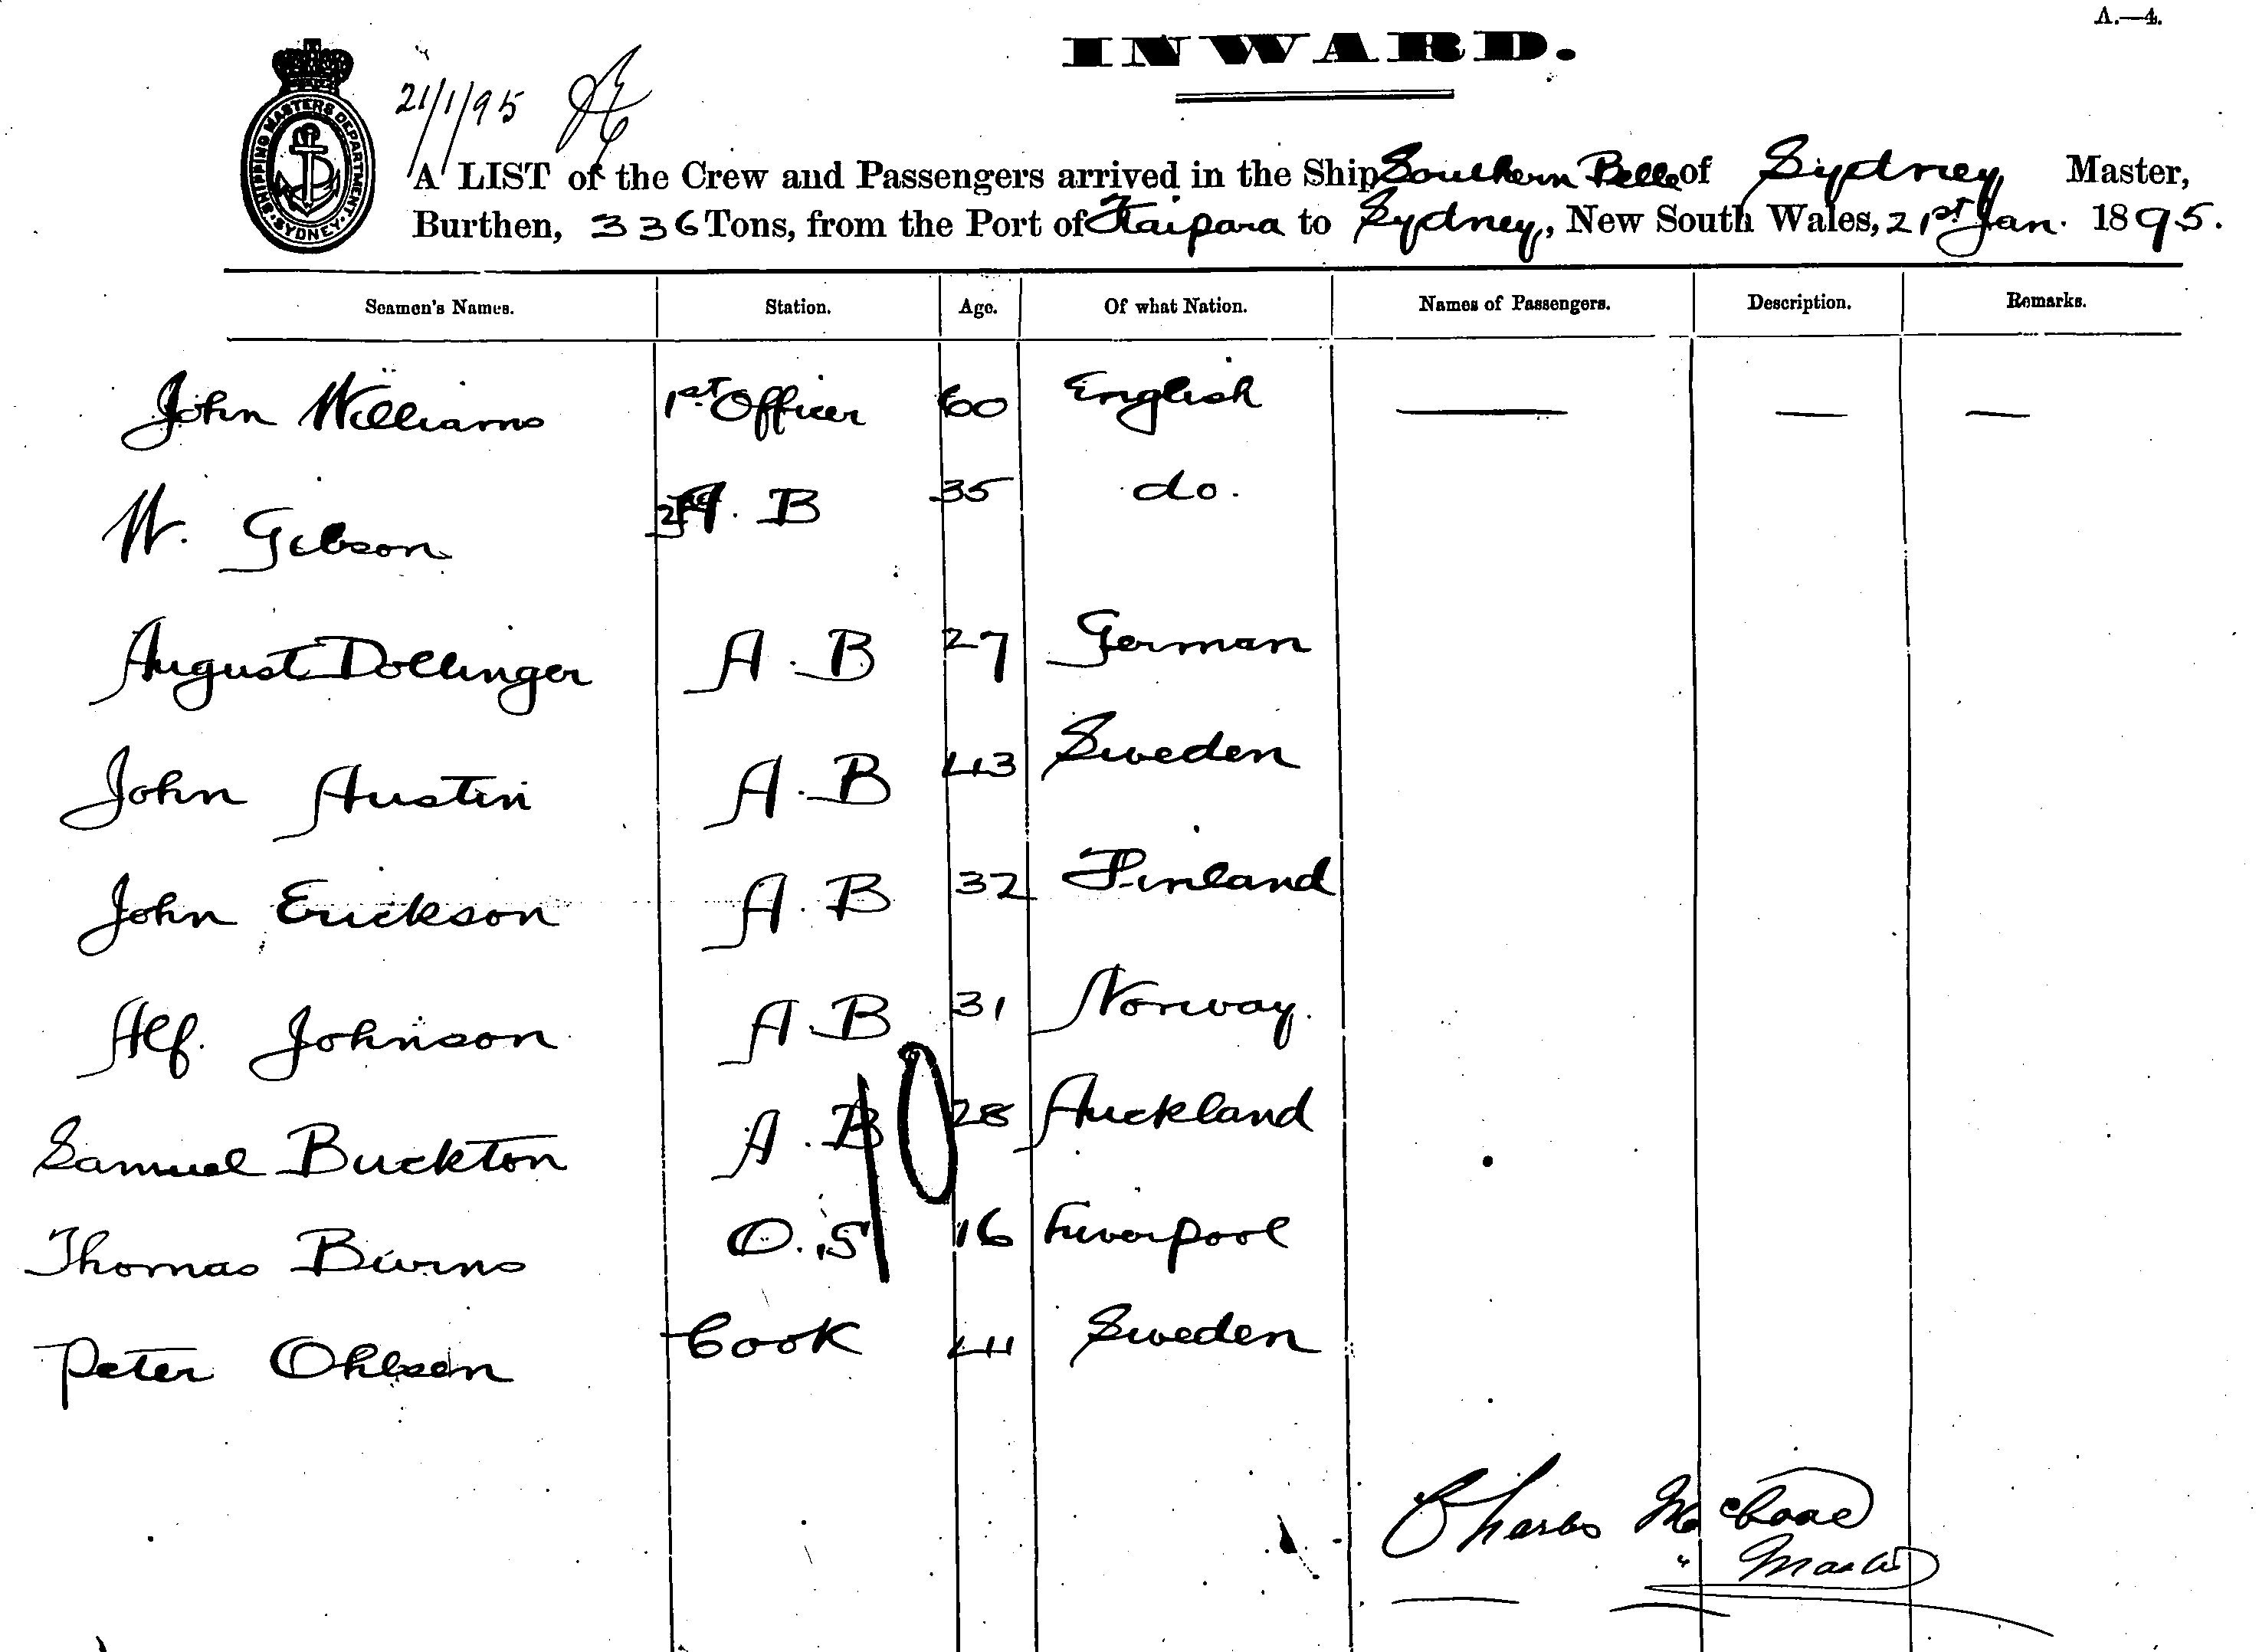 A.—4.
INWARD.
21/1/95
SHIPPING MASTERS DEPARTMENT SYDNEY
A LIST of the Crew and Passengers arrived in the Ship Southern Belle of Sydney Master,
Burthen, 336 Tons, from the Port of Kaipara to Sydney, New South Wales, 21st Jan. 1895.
Seamen's Names. Station. Age. Of what Nation. Names of Passengers. Description. Remarks.
John Williams 1st Officer 60 English — — —
W. Gibson A. B 35 do.
August Dollinger A. B 27 German
John Austin A. B 43 Sweden
John Erickson A. B 32 Finland
Alf. Johnson A. B 31 Norway.
Samuel Buckton A. B 28 Auckland
Thomas Burns O. S 16 Liverpool
Peter Ohlsen Cook 41 Sweden
Charles
Master